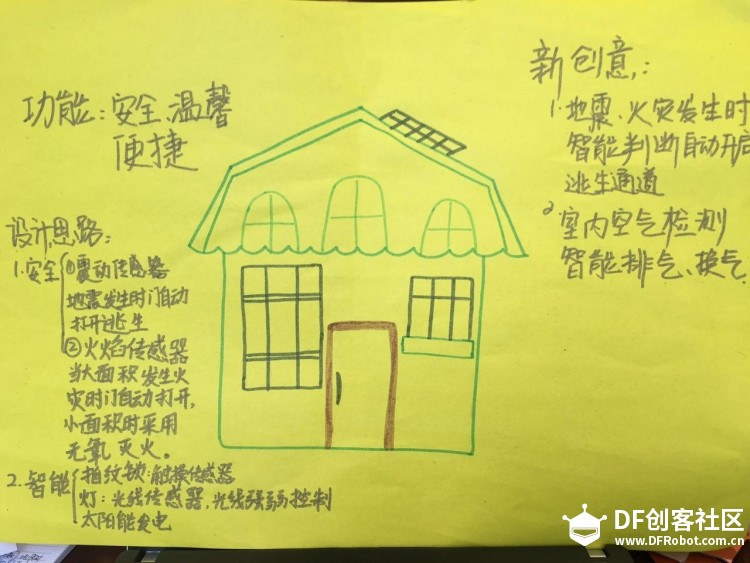 功能：安全、温馨
便捷
新创意：
1. 地震、火灾发生时
智能判断自动开启
逃生通道
2 室内空气检测
智能排气、换气
设计思路：
1.安全 ①震动传感器
地震发生时门自动
打开逃生
②火焰传感器
当大面积发生火
灾时门自动打开,
小面积时采用
无氧灭火。
2.智能 指纹锁：触摸传感器
灯：光线传感器，光线强弱控制
太阳能发电
DF创客社区
www.DFRobot.com.cn